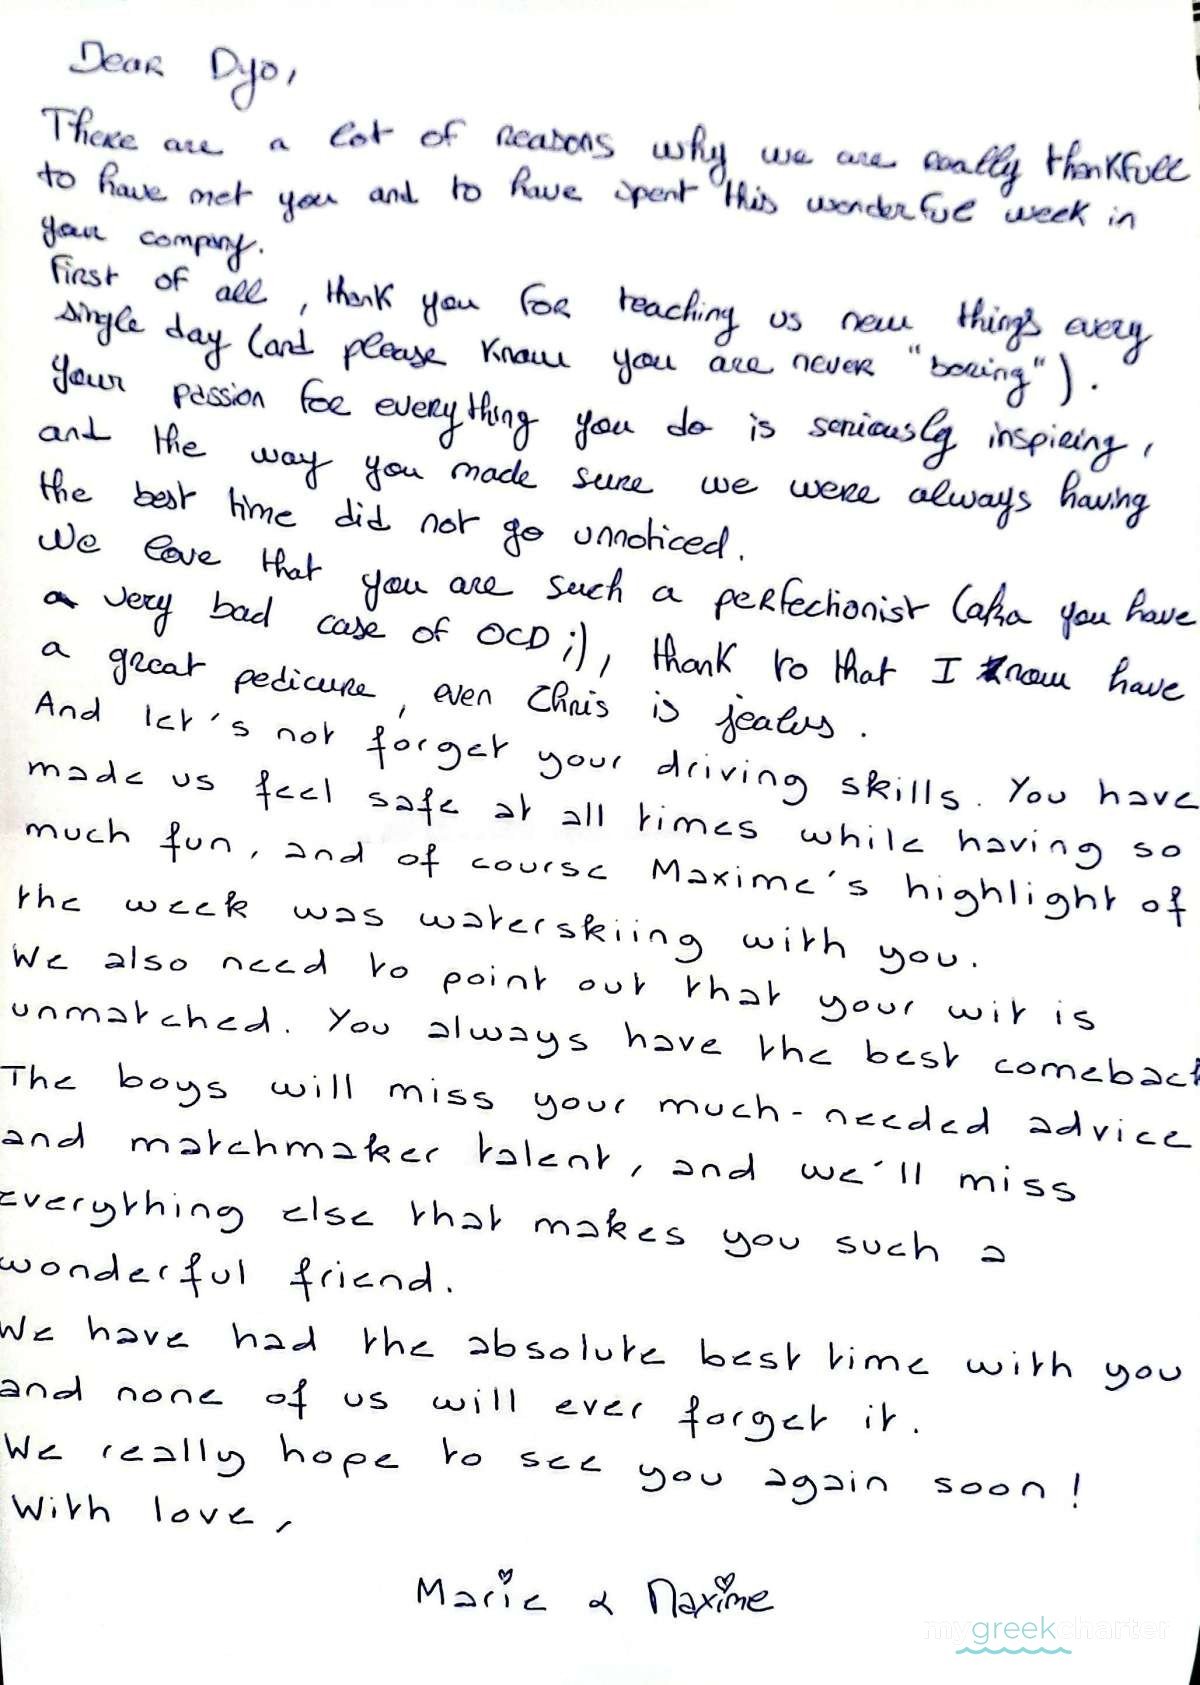 Dear Dyo,
There are a lot of reasons why we are really thankfull
to have met you and to have spent this wonderful week in
your company.
First of all, thank you for teaching us new things every
single day (and please know you are never "boring").
Your passion for everything you do is seriously inspiring,
and the way you made sure we were always having
the best time did not go unnoticed.
We love that you are such a perfectionist (aka you have
a very bad case of OCD ;), thank to that I know have
a great pedicure, even Chris is jealus.
And let's not forget your driving skills. You have
made us feel safe at all times while having so
much fun, and of course Maxime's highlight of
the week was waterskiing with you.
We also need to point out that your wit is
unmatched. You always have the best comeback
The boys will miss your much-needed advice
and matchmaker talent, and we'll miss
everything else that makes you such a
wonderful friend.
We have had the absolute best time with you
and none of us will ever forget it.
We really hope to see you again soon!
With love,
Marie & Maxime
mygreekcharter